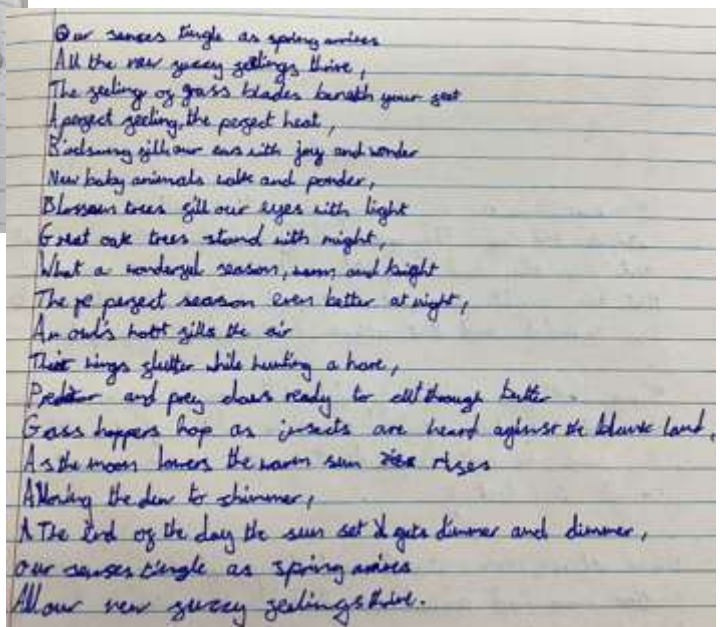 Our senses tingle as spring arrives
All the new fuzzy feelings thrive,
The feeling of grass blades beneath your feet
A perfect feeling, the perfect heat,
Birdsung fill our ears with joy and wonder
New baby animals walk and ponder,
Blossom trees fill our eyes with light
Great oak trees stand with might,
What a wonderful season, warm and bright
The pe perfect season even better at night,
An owl's hoot fills the air
Their wings flutter while hunting a hare,
Predator and prey claws ready to cut through butter.
Gass hoppers hop as insects are heard aginst the blank land,
As the moon lowers the warm sun rises
Allowing the dew to shimmer,
A The End of the day the sun set & gets dimmer and dimmer,
Our senses tingle as spring arrives
All our new fuzzy feelings thrive.